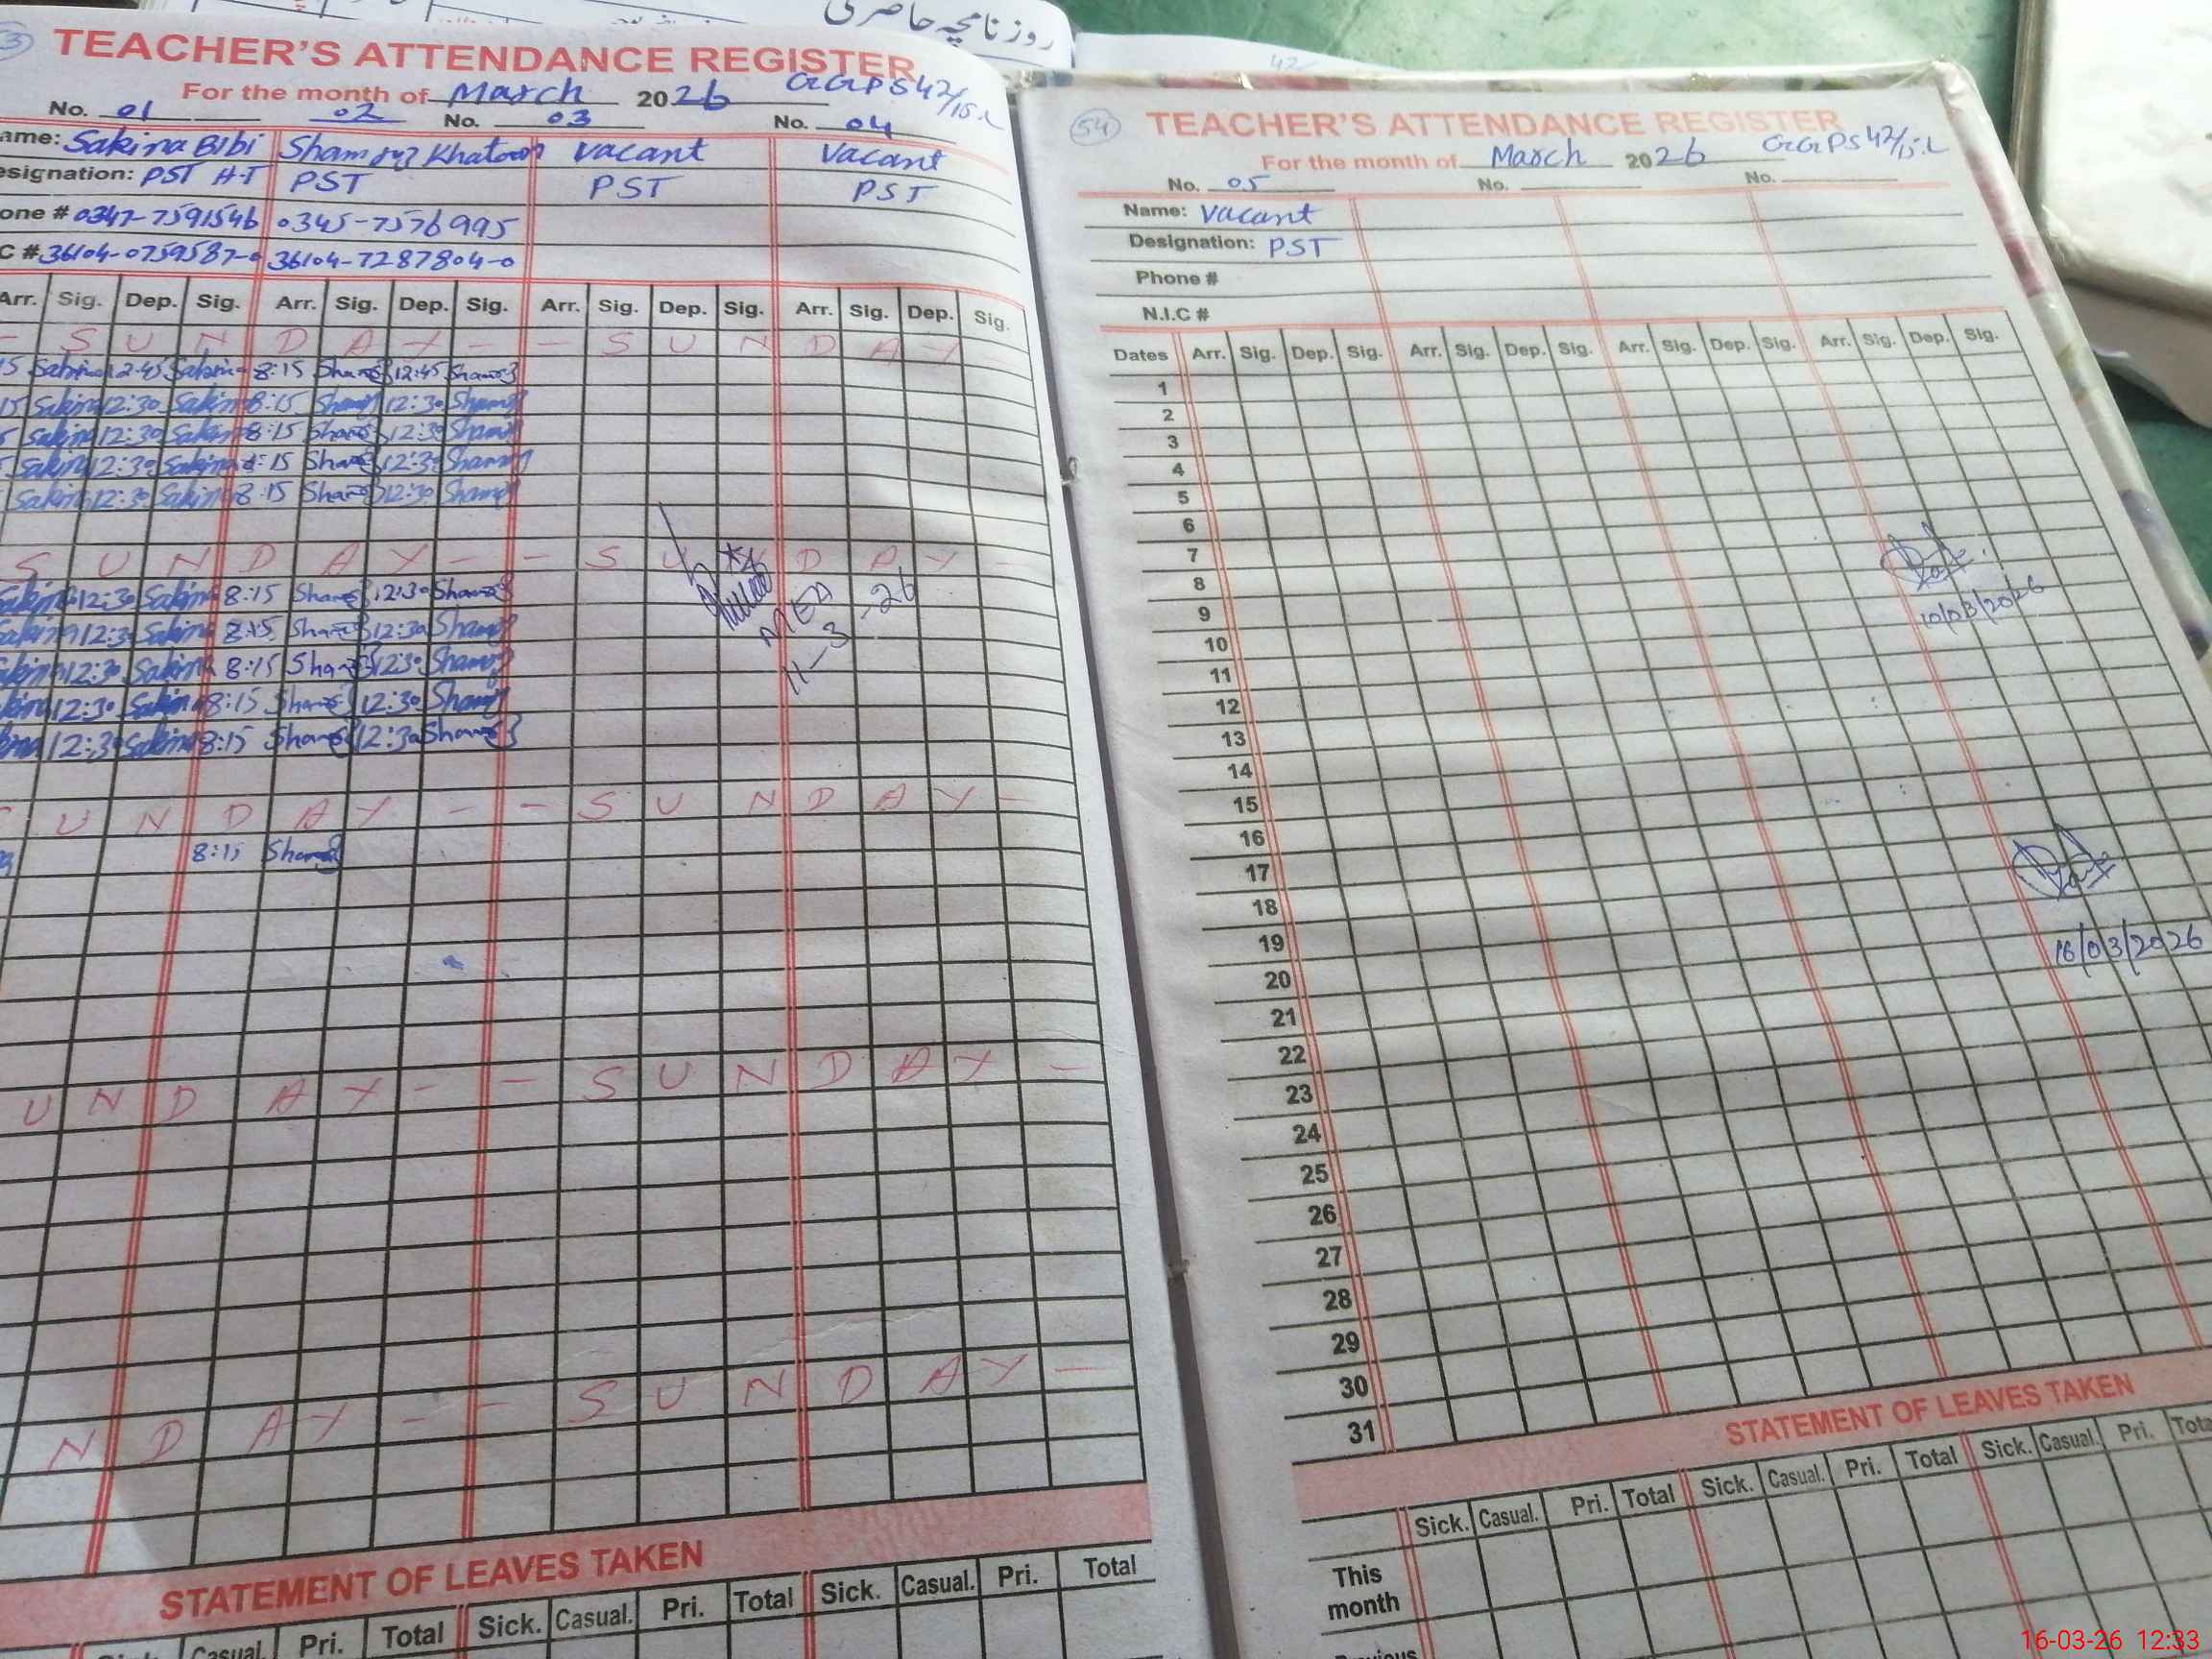 روزنامچہ حاضری
42
TEACHER'S ATTENDANCE REGISTER
For the month of March 2026 GGPS 42/15.L
No. 01 02 No. 03 No. 04
ame: Sakina Bibi Shamroz Khatoon vacant Vacant
esignation: PST H-T PST PST PST
one # 0347-7591546 0345-7576995
C # 36104-0759587-0 36104-7287804-0
Arr. Sig. Dep. Sig. Arr. Sig. Dep. Sig. Arr. Sig. Dep. Sig. Arr. Sig. Dep. Sig.
- S U N D A Y - - S U N D A Y
15 Sakina 12:45 Sakina 8:15 12:45
15 Sakina 12:30 Sakina 8:15 12:30
Sakina 12:30 Sakina 8:15 12:30
Sakina 12:30 Sakina 8:15 12:30
Sakina 12:30 Sakina 8:15 12:30
S U N D A Y - - S U N D A Y -
Sakina 12:30 Sakina 8:15 12:30
Sakina 12:30 Sakina 8:15 12:30
Sakina 12:30 Sakina 8:15 12:30
12:30 Sakina 8:15 12:30
12:30 Sakina 8:15 12:30
MEA
11-3-26
U N D A Y - - S U N D A Y -
8:15
U N D A Y - - S U N D A Y -
N D A Y - - S U N D A Y -
STATEMENT OF LEAVES TAKEN
Sick. Casual. Pri. Total Sick. Casual. Pri. Total Sick. Casual. Pri. Total
54
TEACHER'S ATTENDANCE REGISTER
For the month of March 2026 GGPS 42/15.L
No. 05 No. No.
Name: Vacant
Designation: PST
Phone #
N.I.C #
Dates Arr. Sig. Dep. Sig. Arr. Sig. Dep. Sig. Arr. Sig. Dep. Sig. Arr. Sig. Dep. Sig.
1
2
3
4
5
6
7
8
9 10/03/2026
10
11
12
13
14
15
16
17
18
19 16/03/2026
20
21
22
23
24
25
26
27
28
29
30
31
STATEMENT OF LEAVES TAKEN
Sick. Casual. Pri. Total Sick. Casual. Pri. Total Sick. Casual. Pri. Tota
This
month
16-03-26 12:33